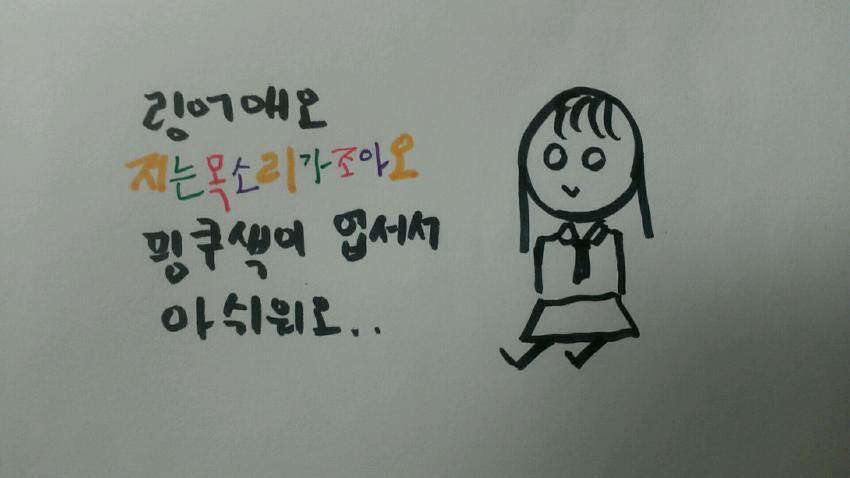 링어애오
지는목소리가조아오
핑쿠색이 업서서
아쉬워오..